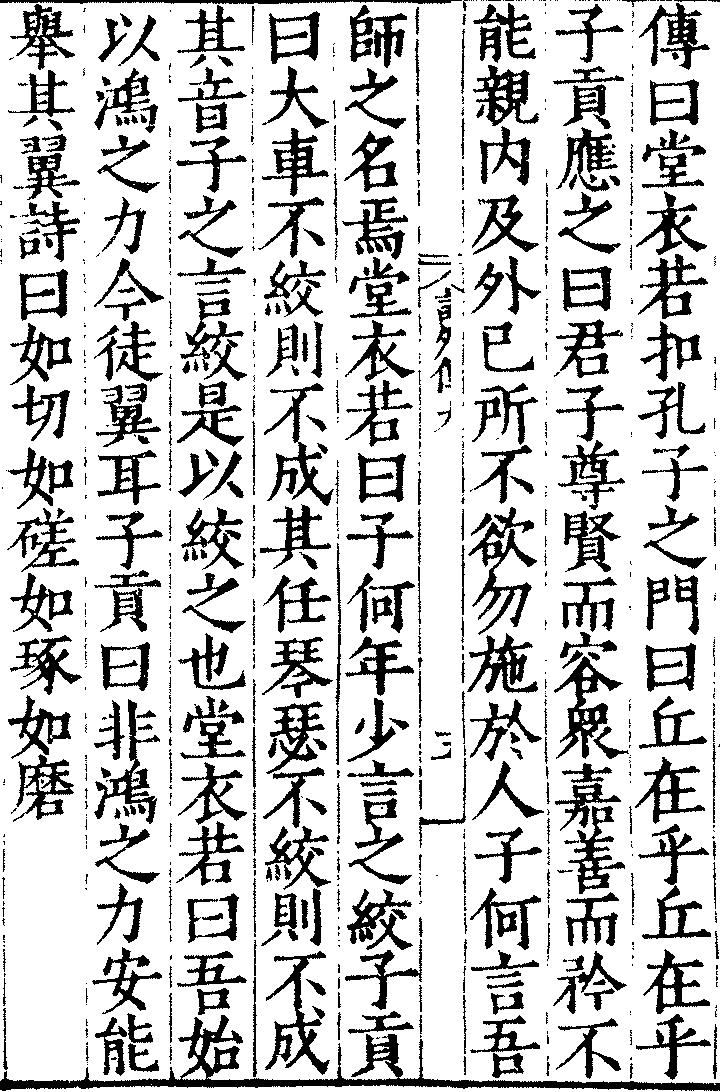 傳曰堂衣若扣孔子之門曰丘在乎丘在乎
子貢應之曰君子尊賢而容衆嘉善而矜不
能親内及外已所不欲勿施於人子何言吾
師之名焉堂衣若曰子何年少言之絞子貢
曰大車不絞則不成其任琴瑟不絞則不成
其音子之言絞是以絞之也堂衣若曰吾始
以鴻之力今徒翼耳子貢曰非鴻之力安能
舉其翼詩曰如切如磋如琢如磨